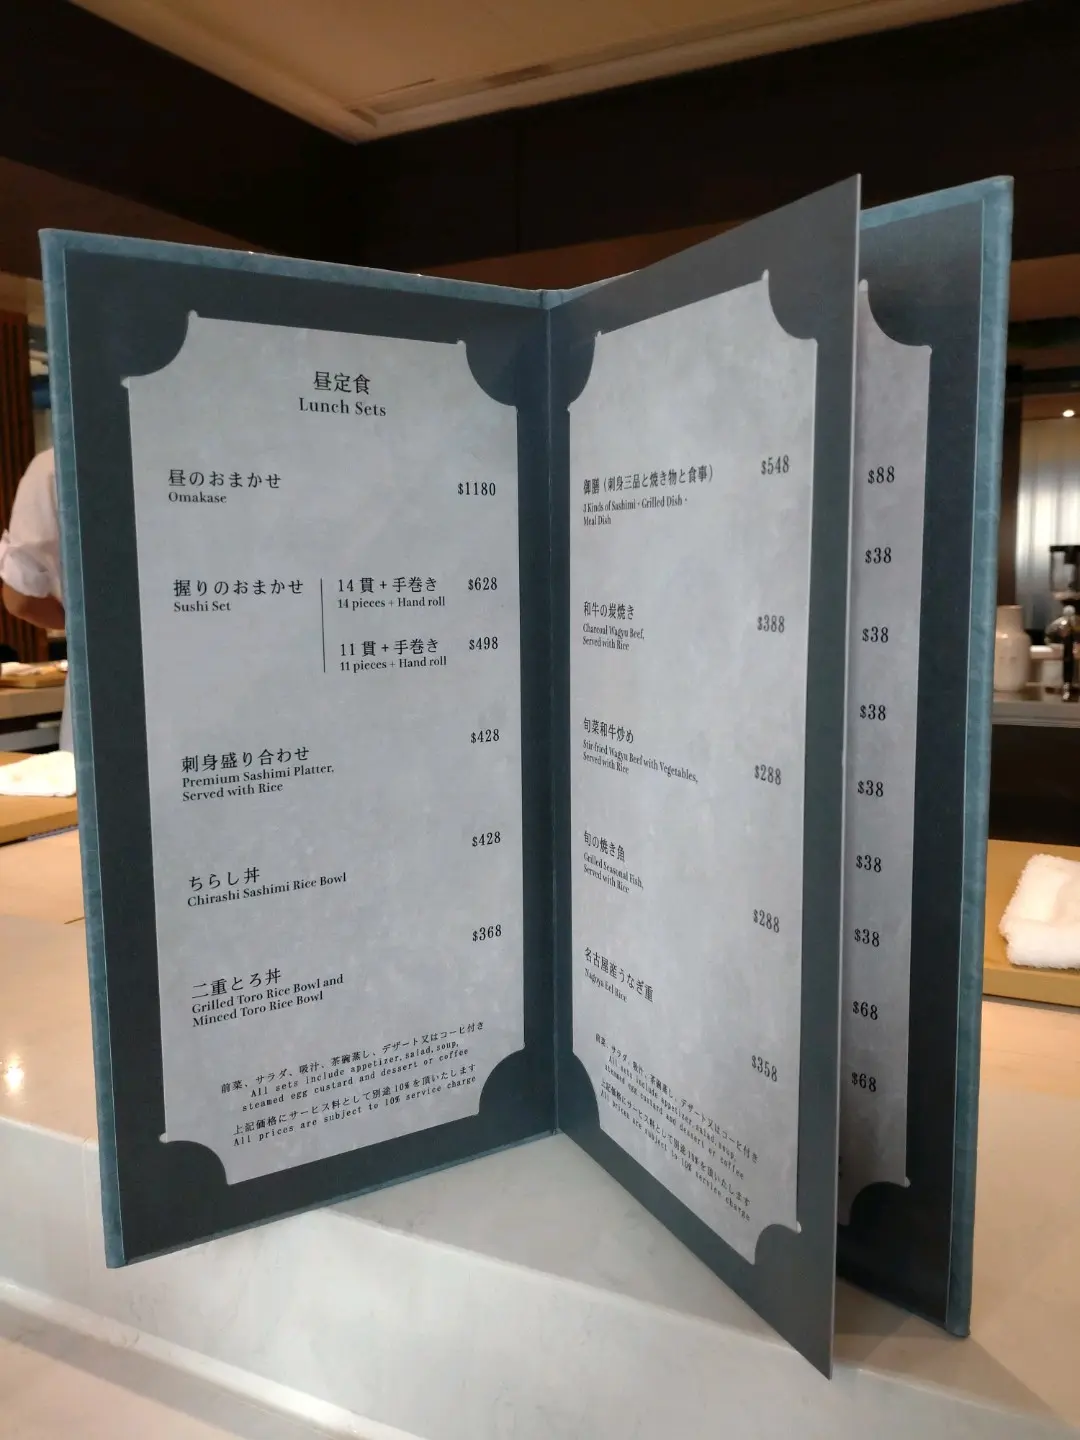 昼定食
Lunch Sets
昼のおまかせ
Omakase
$1180
握りのおまかせ
Sushi Set
14 貫 + 手巻き
14 pieces + Hand roll
$628
11 貫 + 手巻き
11 pieces + Hand roll
$498
刺身盛り合わせ
Premium Sashimi Platter,
Served with Rice
$428
ちらし丼
Chirashi Sashimi Rice Bowl
$428
二重とろ丼
Grilled Toro Rice Bowl and
Minced Toro Rice Bowl
$368
前菜、サラダ、吸汁、茶碗蒸し、デザート又はコーヒ付き
All sets include appetizer,salad,soup,
steamed egg custard and dessert or coffee
上記価格にサービス料として別途10%を頂いたします
All prices are subject to 10% service charge
御膳(刺身三品と焼き物と食事)
3 Kinds of Sashimi・Grilled Dish・
Meal Dish
$548
和牛の炭焼き
Charcoal Wagyu Beef,
Served with Rice
$388
旬菜和牛炒め
Stir-fried Wagyu Beef with Vegetables,
Served with Rice
$288
旬の焼き魚
Grilled Seasonal Fish,
Served with Rice
$288
名古屋産うなぎ重
Nagoya Eel Rice
$358
前菜、サラダ、吸汁、茶碗蒸し、デザート又はコーヒ付き
All sets include appetizer,salad,soup,
steamed egg custard and dessert or coffee
上記価格にサービス料として別途10%を頂いたします
All prices are subject to 10% service charge
$88
$38
$38
$38
$38
$38
$38
$68
$68